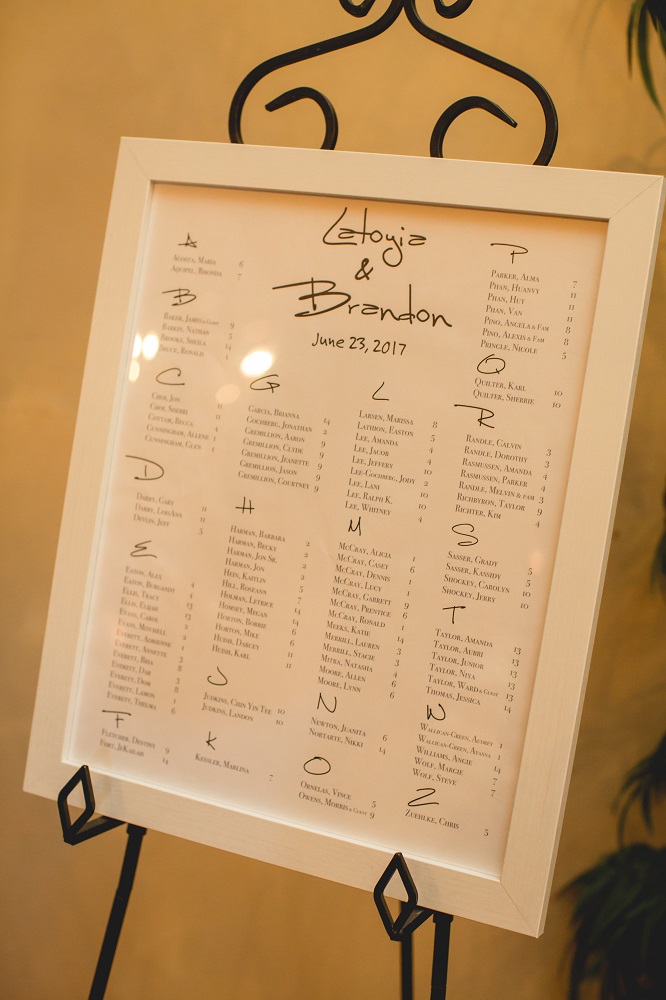 Latoyia
&
Brandon
June 23, 2017
A
Acosta, Maria 6
Aquipel, Rhonda 7
B
Baker, James & Guest 9
Barkin, Nathan 5
Brooke, Sheila 14
Bruce, Ronald 1
C
Choi, Jon 11
Choi, Sherri 11
Cottar, Becca 4
Cunningham, Allene 1
Cunningham, Glen 1
D
Darby, Gary 11
Darby, LoisAnn 11
Devlin, Jeff 5
E
Eaton, Alex 4
Eaton, Burgandy 4
Ellis, Tracy 13
Ellis, Elijah 13
Evans, Carol 2
Evans, Mitchell 2
Everett, Adrienne 1
Everett, Annette 3
Everett, Bria 8
Everett, Dar 3
Everett, Dom 8
Everett, Lamon 1
Everett, Thelma 6
F
Fletcher, Destiny 9
Fort, JeKailah 14
G
Garcia, Brianna 14
Gochberg, Jonathan 2
Gremillion, Aaron 9
Gremillion, Clyde 9
Gremillion, Jeanette 9
Gremillion, Jason 9
Gremillion, Courtney 9
H
Harman, Barbara 2
Harman, Becky 2
Harman, Jon Sr. 2
Harman, Jon 2
Hein, Kaitlin 5
Hill, Roseann 7
Holman, Letrice 14
Homsey, Megan 14
Horton, Bobbie 6
Horton, Mike 6
Huish, Darcey 11
Huish, Karl 11
J
Judkins, Chin Yin Tee 10
Judkins, Landon 10
K
Kessler, Marlina 7
L
Larsen, Marissa 8
Lathion, Easton 5
Lee, Amanda 4
Lee, Jacob 4
Lee, Jeffery 10
Lee-Gochberg, Jody 2
Lee, Lani 10
Lee, Ralph K. 10
Lee, Whitney 4
M
McCray, Alicia 1
McCray, Casey 6
McCray, Dennis 1
McCray, Lucy 1
McCray, Garrett 9
McCray, Prentice 6
McCray, Ronald 1
Meeks, Katie 14
Merrill, Lauren 3
Merrill, Stacie 3
Mitra, Natasha 4
Moore, Allen 6
Moore, Lynn 6
N
Newton, Juanita 6
Nortarte, Nikki 14
O
Ornelas, Vince 5
Owens, Morris & Guest 9
P
Parker, Alma 7
Phan, Huanvy 11
Phan, Huy 11
Phan, Van 11
Pino, Angela & Fam 8
Pino, Alexis & Fam 8
Pringle, Nicole 5
Q
Quilter, Karl 10
Quilter, Sherrie 10
R
Randle, Calvin 3
Randle, Dorothy 3
Rasmussen, Amanda 4
Rasmussen, Parker 4
Randle, Melvin & fam 3
Richbyron, Taylor 9
Richter, Kim 4
S
Sasser, Grady 5
Sasser, Kassidy 5
Shockey, Carolyn 10
Shockey, Jerry 10
T
Taylor, Amanda 13
Taylor, Aubri 13
Taylor, Junior 13
Taylor, Niya 13
Taylor, Ward & Guest 13
Thomas, Jessica 14
W
Wallican-Green, Audrey 1
Wallican-Green, Ayanna 1
Williams, Angie 14
Wolf, Margie 7
Wolf, Steve 7
Z
Zuehlke, Chris 5